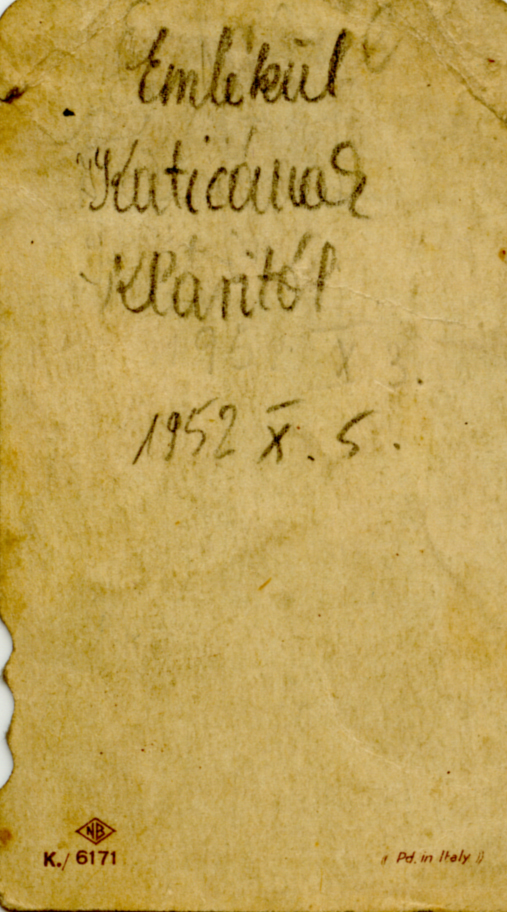 Emlékül
Katicának
Klaritól
1952 X. 5.
NB
K./ 6171
Pd. in Italy